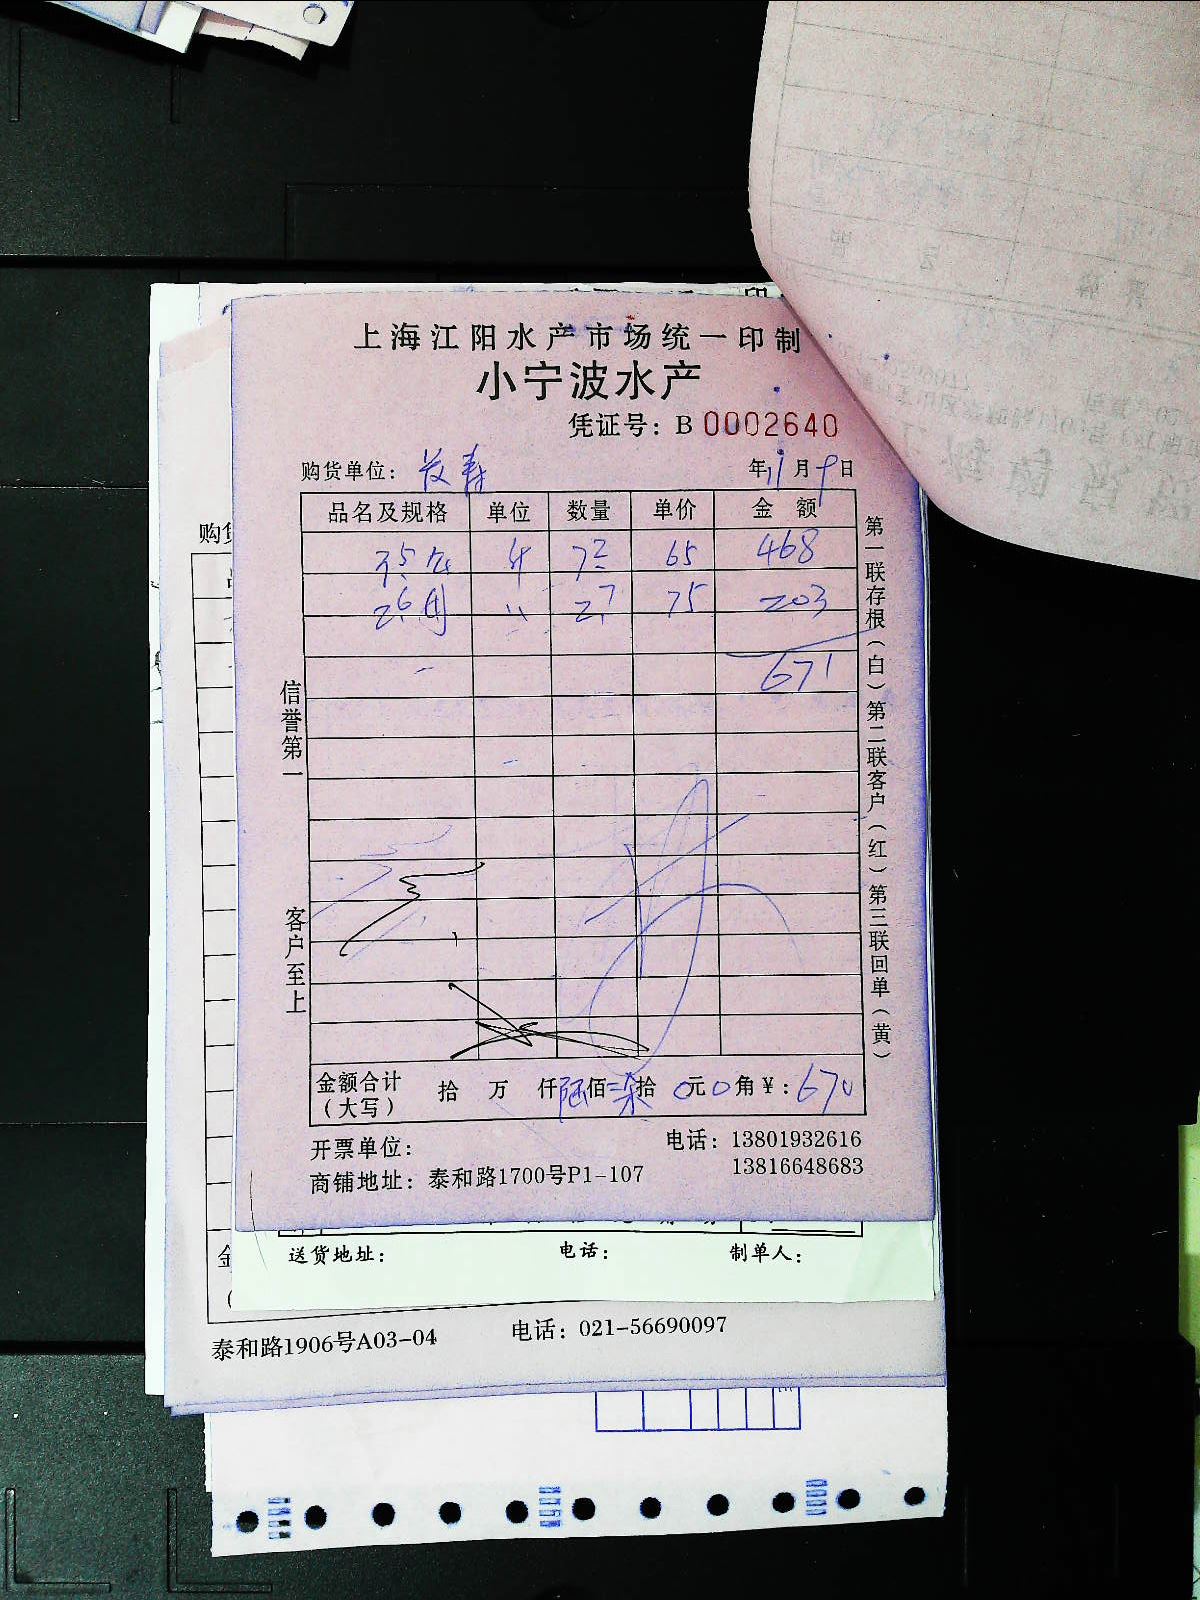 上海江阳水产市场统一印制
小宁波水产
凭证号：B 0002640
购货单位： 年11月9日
品名及规格 单位 数量 单价 金额
7.2 65 468
2.6 〃 2.7 75 203
671
信誉第一
客户至上
第一联存根（白）第二联客户（红）第三联回单（黄）
金额合计（大写） 拾 万 仟陆佰柒拾0元0角¥：670
开票单位： 电话：13801932616
商铺地址：泰和路1700号P1-107 13816648683
送货地址： 电话： 制单人：
泰和路1906号A03-04 电话：021-56690097